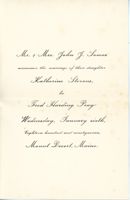 Mr. & Mrs. John J. Somes
announce the marriage of their daughter
Katharine Stevens,
to
Fred Harding Pray
Wednesday, January sixth,
Eighteen hundred and
Mount Desert, Maine.